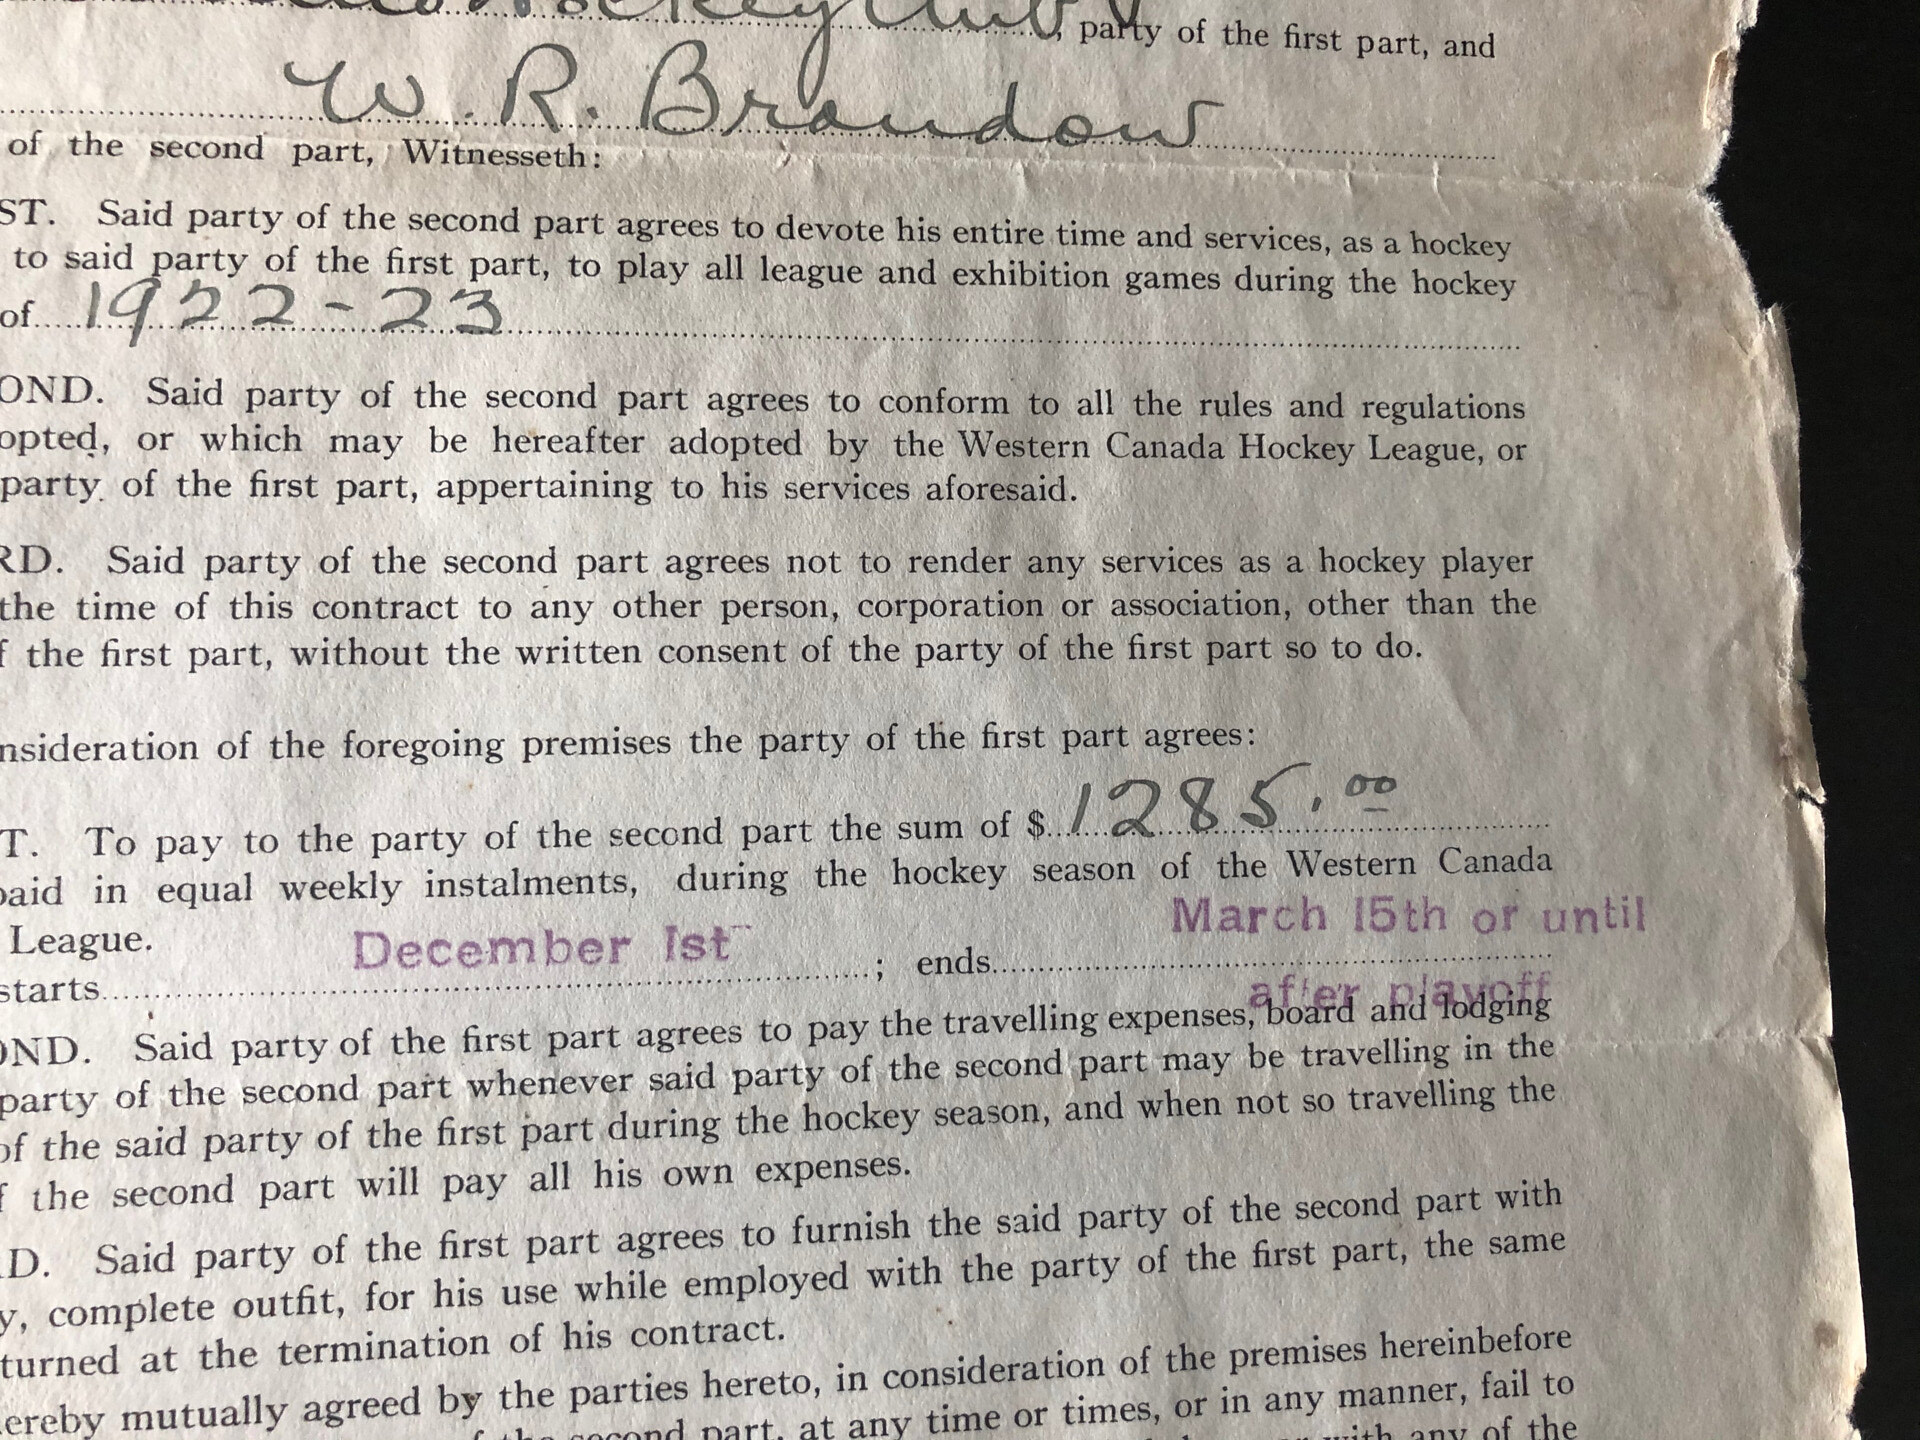 Hockey Club, party of the first part, and
W. R. Brandow
of the second part, Witnesseth:
ST. Said party of the second part agrees to devote his entire time and services, as a hockey
to said party of the first part, to play all league and exhibition games during the hockey
of 1922-23
OND. Said party of the second part agrees to conform to all the rules and regulations
opted, or which may be hereafter adopted by the Western Canada Hockey League, or
party of the first part, appertaining to his services aforesaid.
RD. Said party of the second part agrees not to render any services as a hockey player
the time of this contract to any other person, corporation or association, other than the
f the first part, without the written consent of the party of the first part so to do.
nsideration of the foregoing premises the party of the first part agrees:
T. To pay to the party of the second part the sum of $ 1285.00
paid in equal weekly instalments, during the hockey season of the Western Canada
League.
March 15th or until
starts December 1st ; ends
after playoff
OND. Said party of the first part agrees to pay the travelling expenses, board and lodging
party of the second part whenever said party of the second part may be travelling in the
of the said party of the first part during the hockey season, and when not so travelling the
f the second part will pay all his own expenses.
D. Said party of the first part agrees to furnish the said party of the second part with
y, complete outfit, for his use while employed with the party of the first part, the same
turned at the termination of his contract.
ereby mutually agreed by the parties hereto, in consideration of the premises hereinbefore
second part, at any time or times, or in any manner, fail to
with any of the